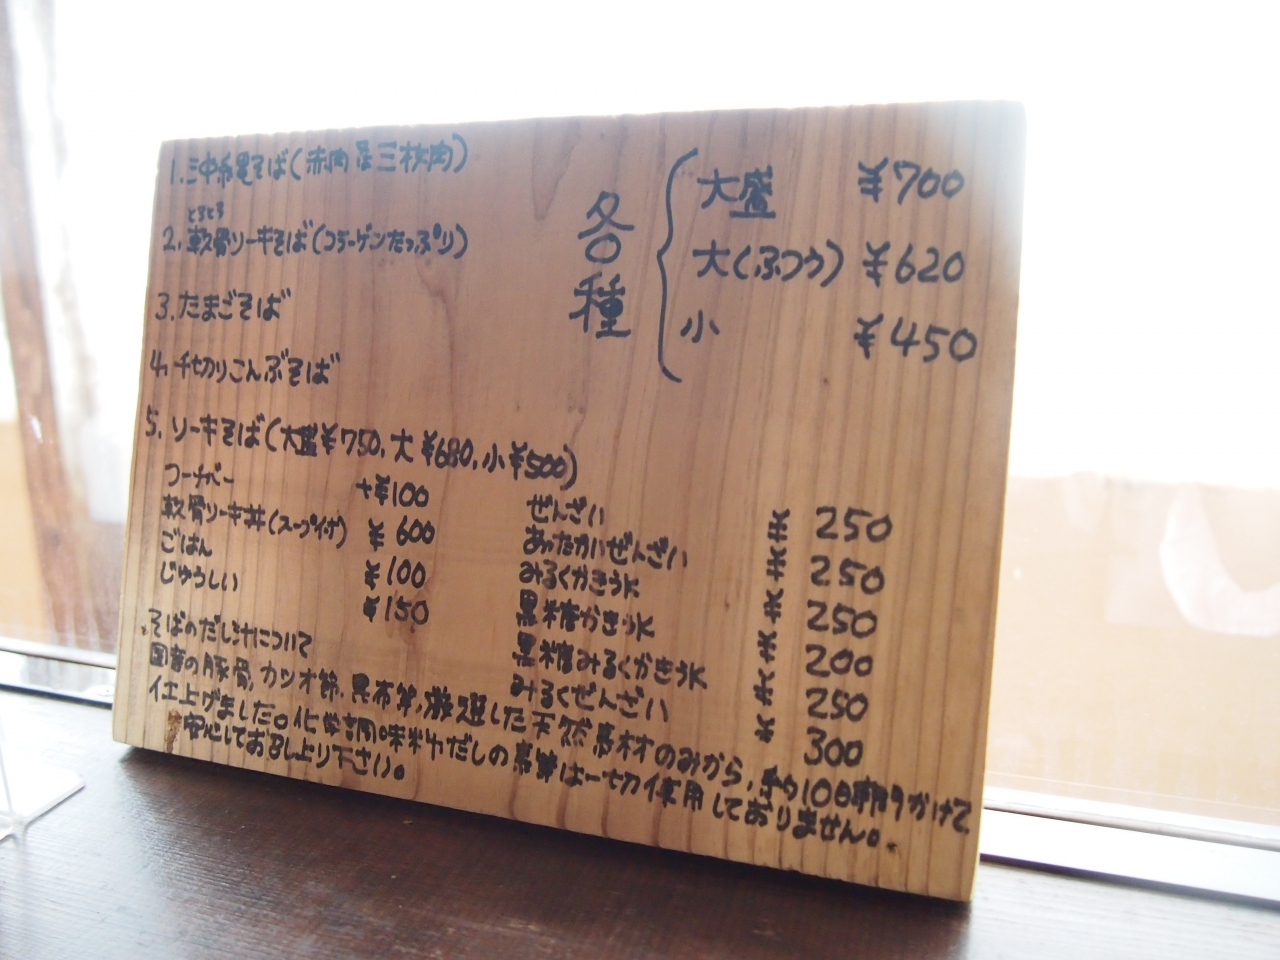 1. 沖縄そば(赤肉又は三枚肉)
とろとろ
2. 軟骨ソーキそば(コラーゲンたっぷり)
3. たまごそば
4. 千切りこんぶそば
各種
大盛 ¥700
大(ふつう) ¥620
小 ¥450
5. ソーキそば(大盛¥750、大¥680、小¥500)
フーチバー +¥100
軟骨ソーキ丼(スープ付) ¥600
ごはん ¥100
じゅうしい ¥150
ぜんざい ¥250
あったかいぜんざい ¥250
みるくかき氷 ¥250
黒糖かき氷 ¥200
黒糖みるくかき氷 ¥250
みるくぜんざい ¥300
そばのだし汁について
国産の豚骨、カツオ節、昆布等、厳選した天然素材のみから、約10時間かけて
仕上げました。化学調味料やだしの素等は一切使用しておりません。
安心してお召し上り下さい。